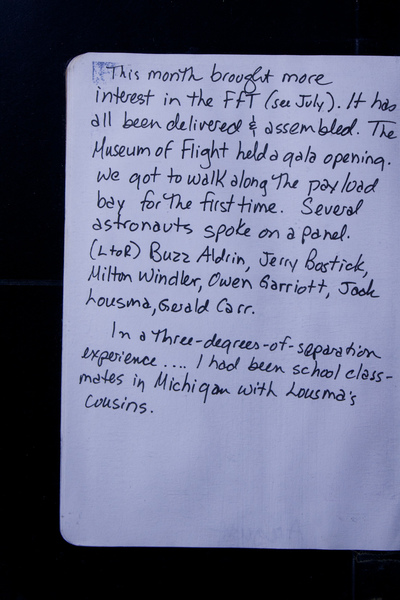 This month brought more
interest in the FFT (see July). It has
all been delivered & assembled. The
Museum of Flight held a gala opening.
We got to walk along the payload
bay for the first time. Several
astronauts spoke on a panel.
(L to R) Buzz Aldrin, Jerry Bostick,
Milton Windler, Owen Garriott, Jack
Lousma, Gerald Carr.
In a three-degrees-of-separation
experience .... I had been school class-
mates in Michigan with Lousma's
cousins.